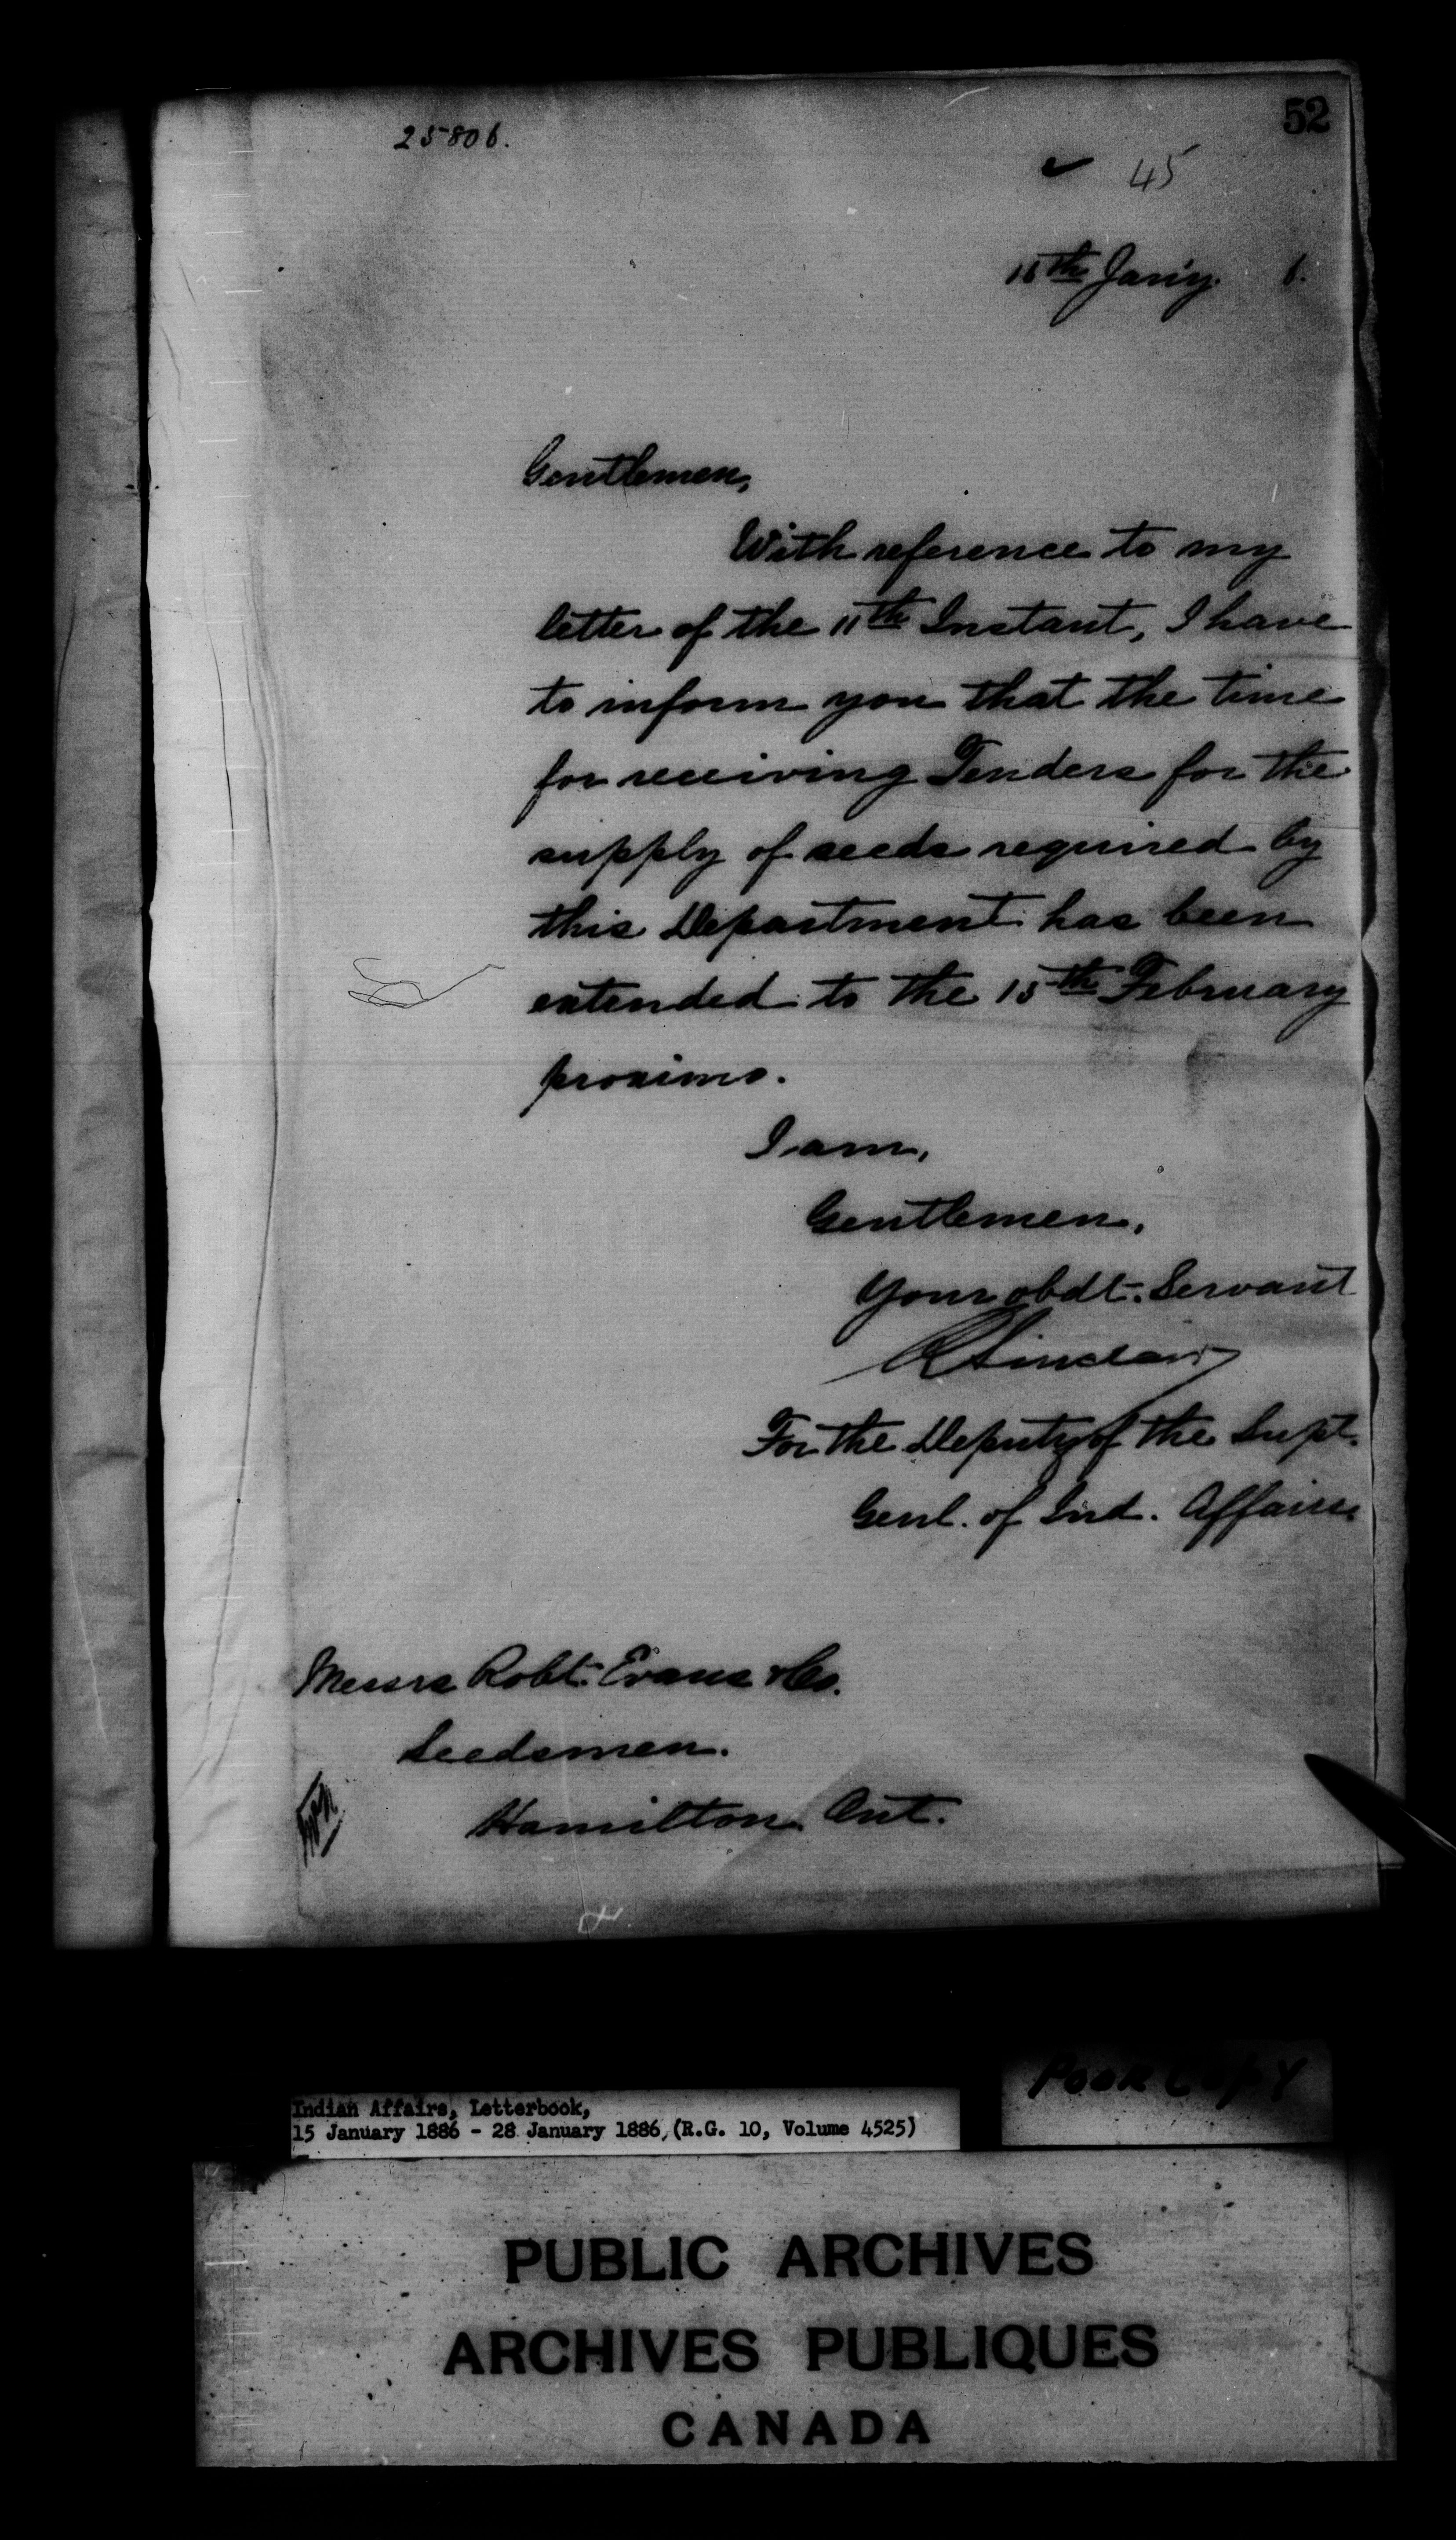 52
25806.
45
15th Jan'y. 6.
Gentlemen,
With reference to my
letter of the 11th Instant, I have
to inform you that the time
for receiving Tenders for the
supply of seeds required by
this Department has been
extended to the 15th February
proximo.
I am,
Gentlemen,
Your obdt. Servant
R Sinclair
For the Deputy of the Supt.
Genl. of Ind. Affairs
Messrs Robt. Evans & Co.
Seedsmen.
Hamilton Ont.
Poor Copy
Indian Affairs, Letterbook,
15 January 1886 - 28 January 1886,(R.G. 10, Volume 4525)
PUBLIC ARCHIVES
ARCHIVES PUBLIQUES
CANADA